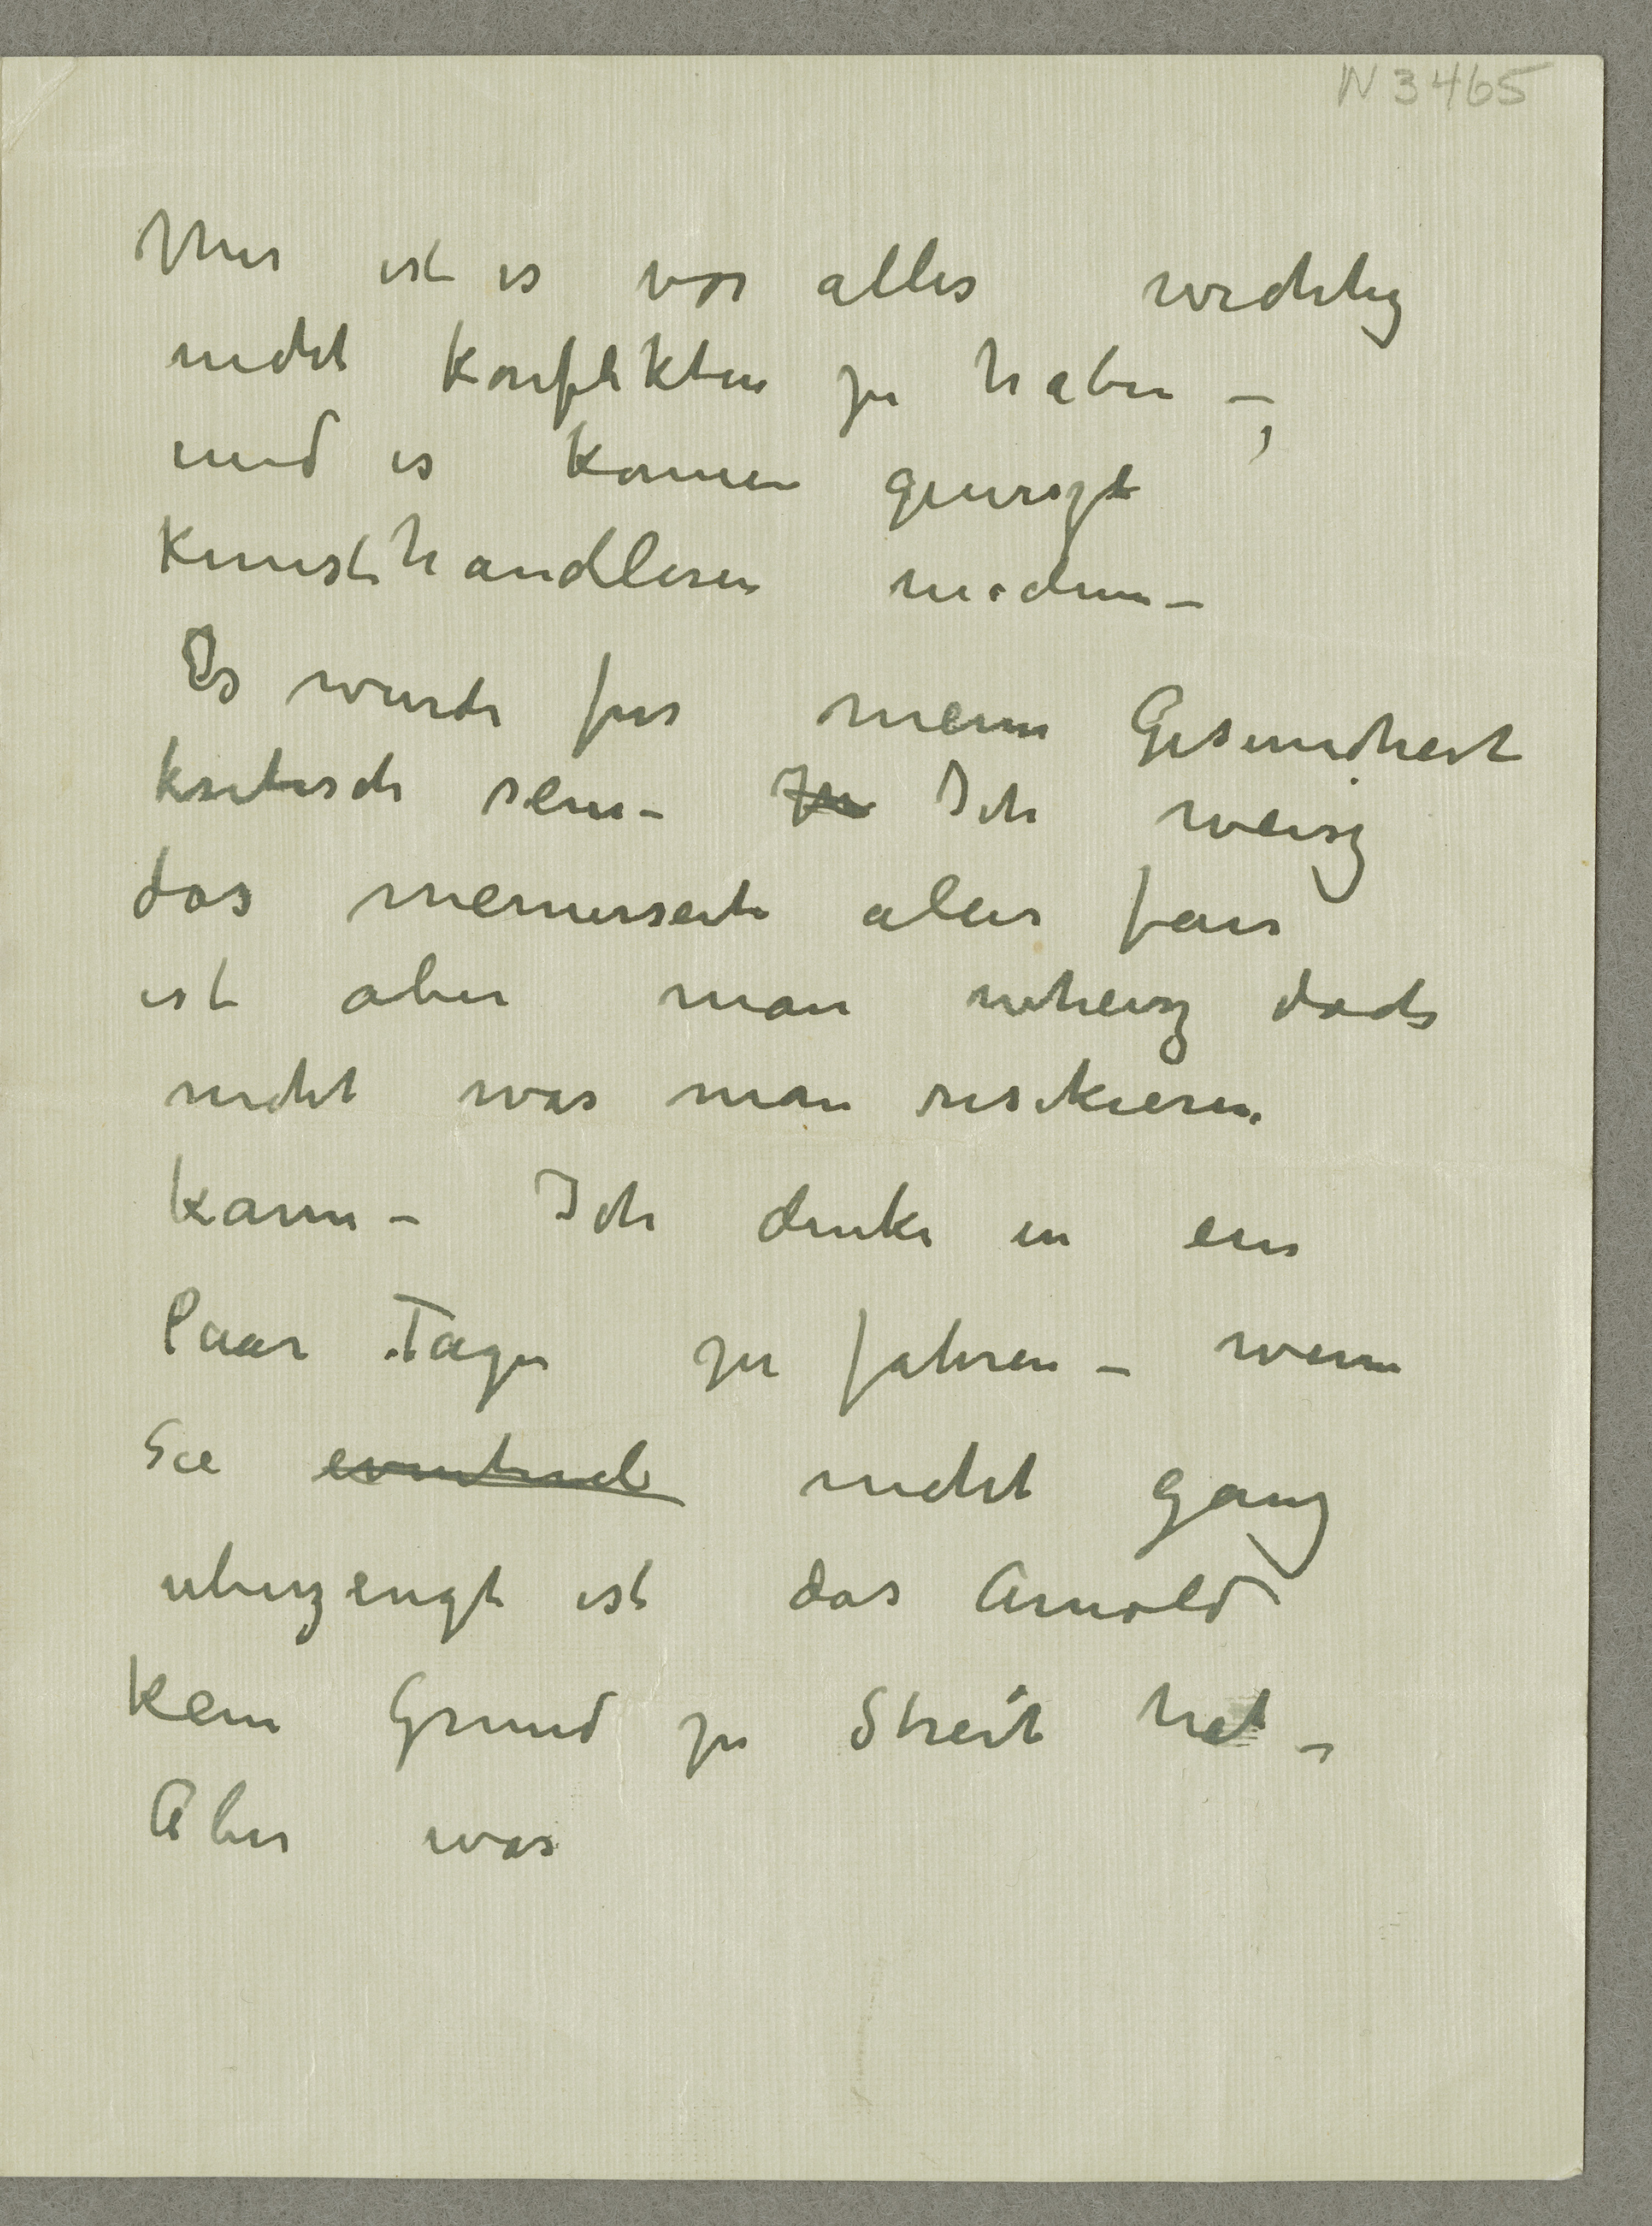 N 3465
Mir ist es vor alles wichtig
nicht Konflikten zu haben –,
und es können
Kunsthandleren
Es wurde fur meine Gesundheit
kritisch sein – Zu Ich weisz
das meinerseite alles fair
ist aber man wheisz doch
nicht was man risikieren
kann – Ich denke in ein
Paar Tage zu fahren – wenn
Sie eventuel nicht ganz
uberzeugt ist das Arnold
kein Grund zu Streit hat –
Aber was